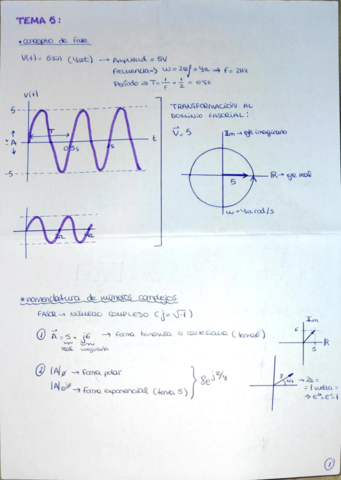 TEMA 5:
* concepto de fase
V(t) = 5sen (4πt) → Amplitud = 5V
Frecuencia → w = 2πf = 4π → f = 2Hz
Período → T = 1/f = 1/2 = 0'5s
V(t)
5
T
A
0'5s
t
-5
TRANSFORMACIÓN AL
DOMINIO FASORIAL:
V = 5
Im → eje imaginario
5
R → eje real
w = 4π rad/s
* nomenclatura de números complejos
FASOR → NÚMERO COMPLEJO (j = √-1)
① A = 5 + j6 → forma binómica o cartesiana (tema 6)
real imaginaria
Im
6
R
5
② |A| → forma polar
|A| → forma exponencial (tema 5)
1